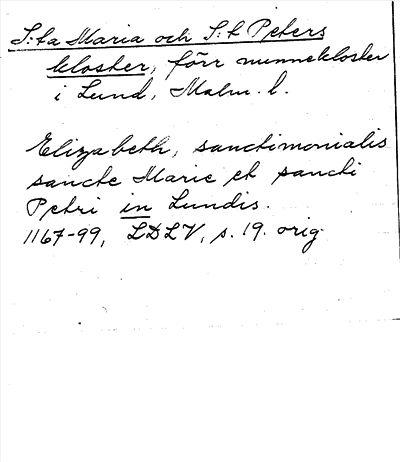 S:ta Maria och S:t Peters
kloster, förr nunnekloster
i Lund, Malm. l.
Elizabeth, sanctimonialis
sancte Marie et sancti
Petri in Lundis.
1167-99, LDLV, s. 19. orig.